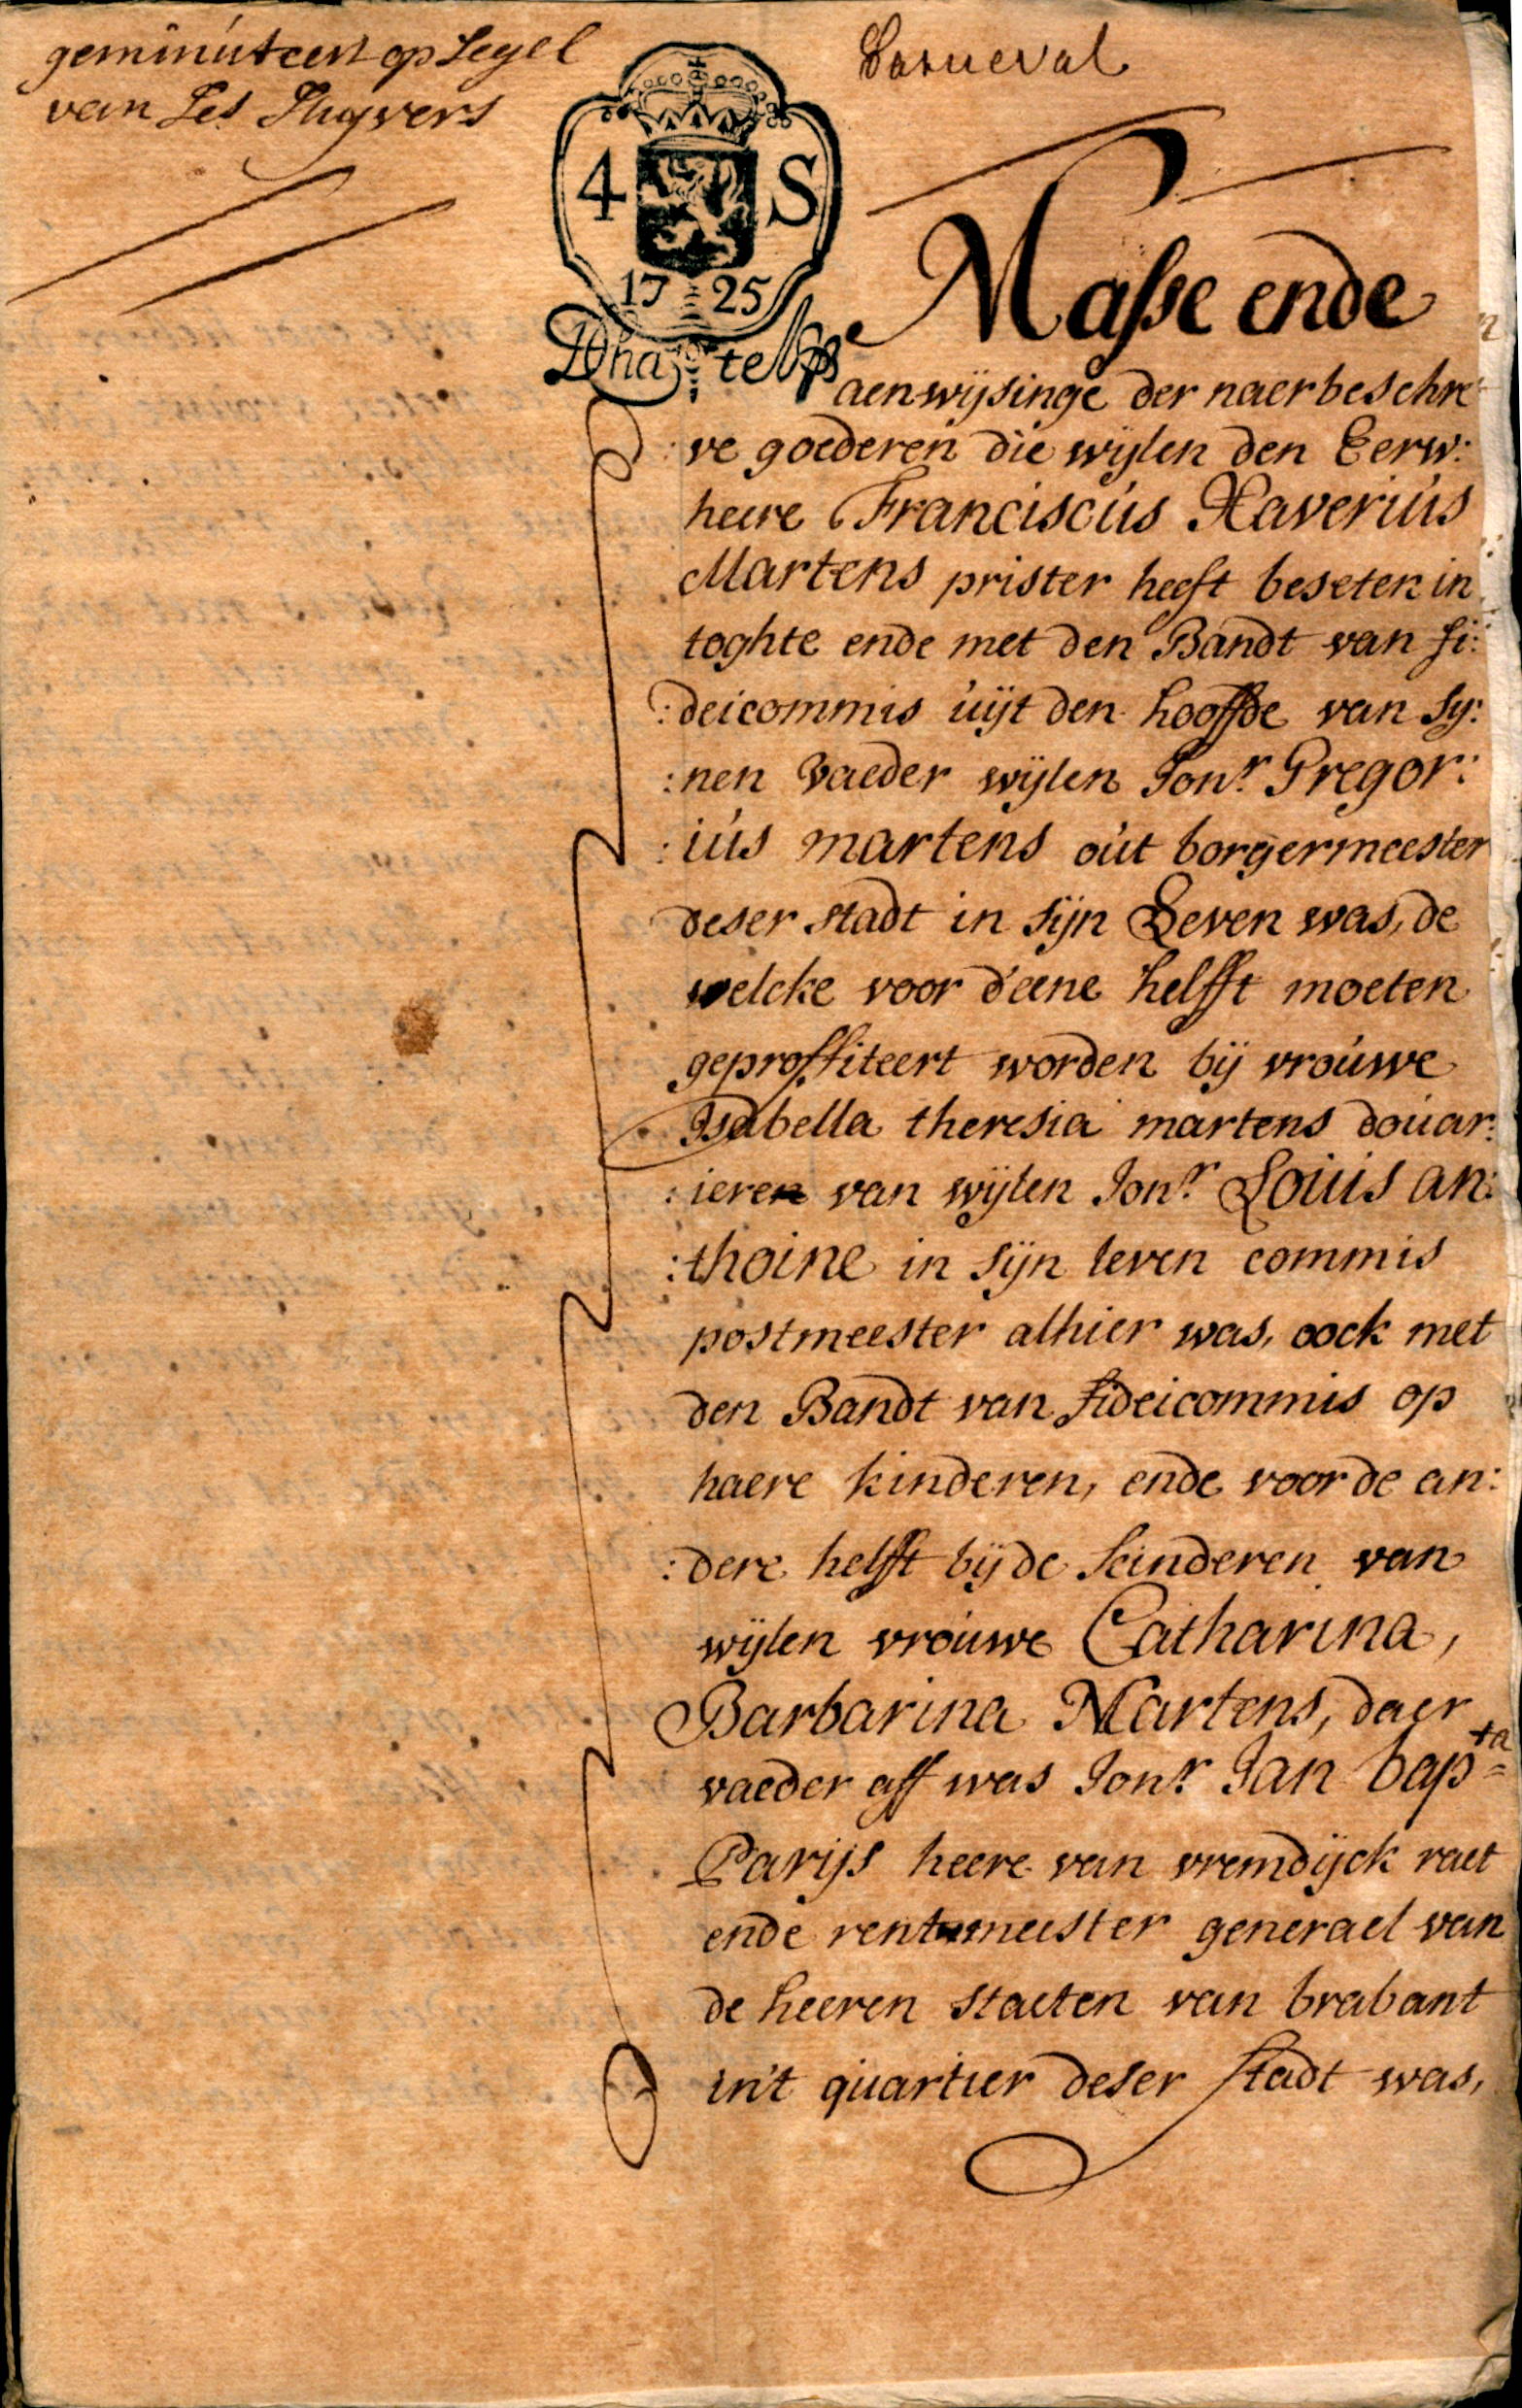 geminuteert op segel
van ses stuyvers
4 S
17 25
Masse ende
aenwijsinge der naerbeschre
ve goederen die wijlen den Eerw:
heere Franciscus Xaverius
Martens prister heeft beseten in
toghte ende met den Bandt van fi:
:deicommis uijt den hooffde van sy:
:nen vaeder wijlen Jonr. Gregor:
:ius martens out borgermeester
deser stadt in sijn Leven was, de
welcke voor d'eene helfft moeten
geproffiteert worden bij vrouwe
Isabella theresia martens douar:
:ieren van wijlen Jonr. Louis an:
:thoine in sijn leven commis
postmeester alhier was, oock met
den Bandt van fideicommis op
haere kinderen, ende voor de an:
:dere helfft bij de kinderen van
wijlen vrouwe Catharina,
Barbarina Martens, daer
vaeder aff was Jonr. Jan bapta
Parijs heere van vremdijck raet
ende rentmeester generael van
de heeren staeten van brabant
in't quartier deser stadt was,